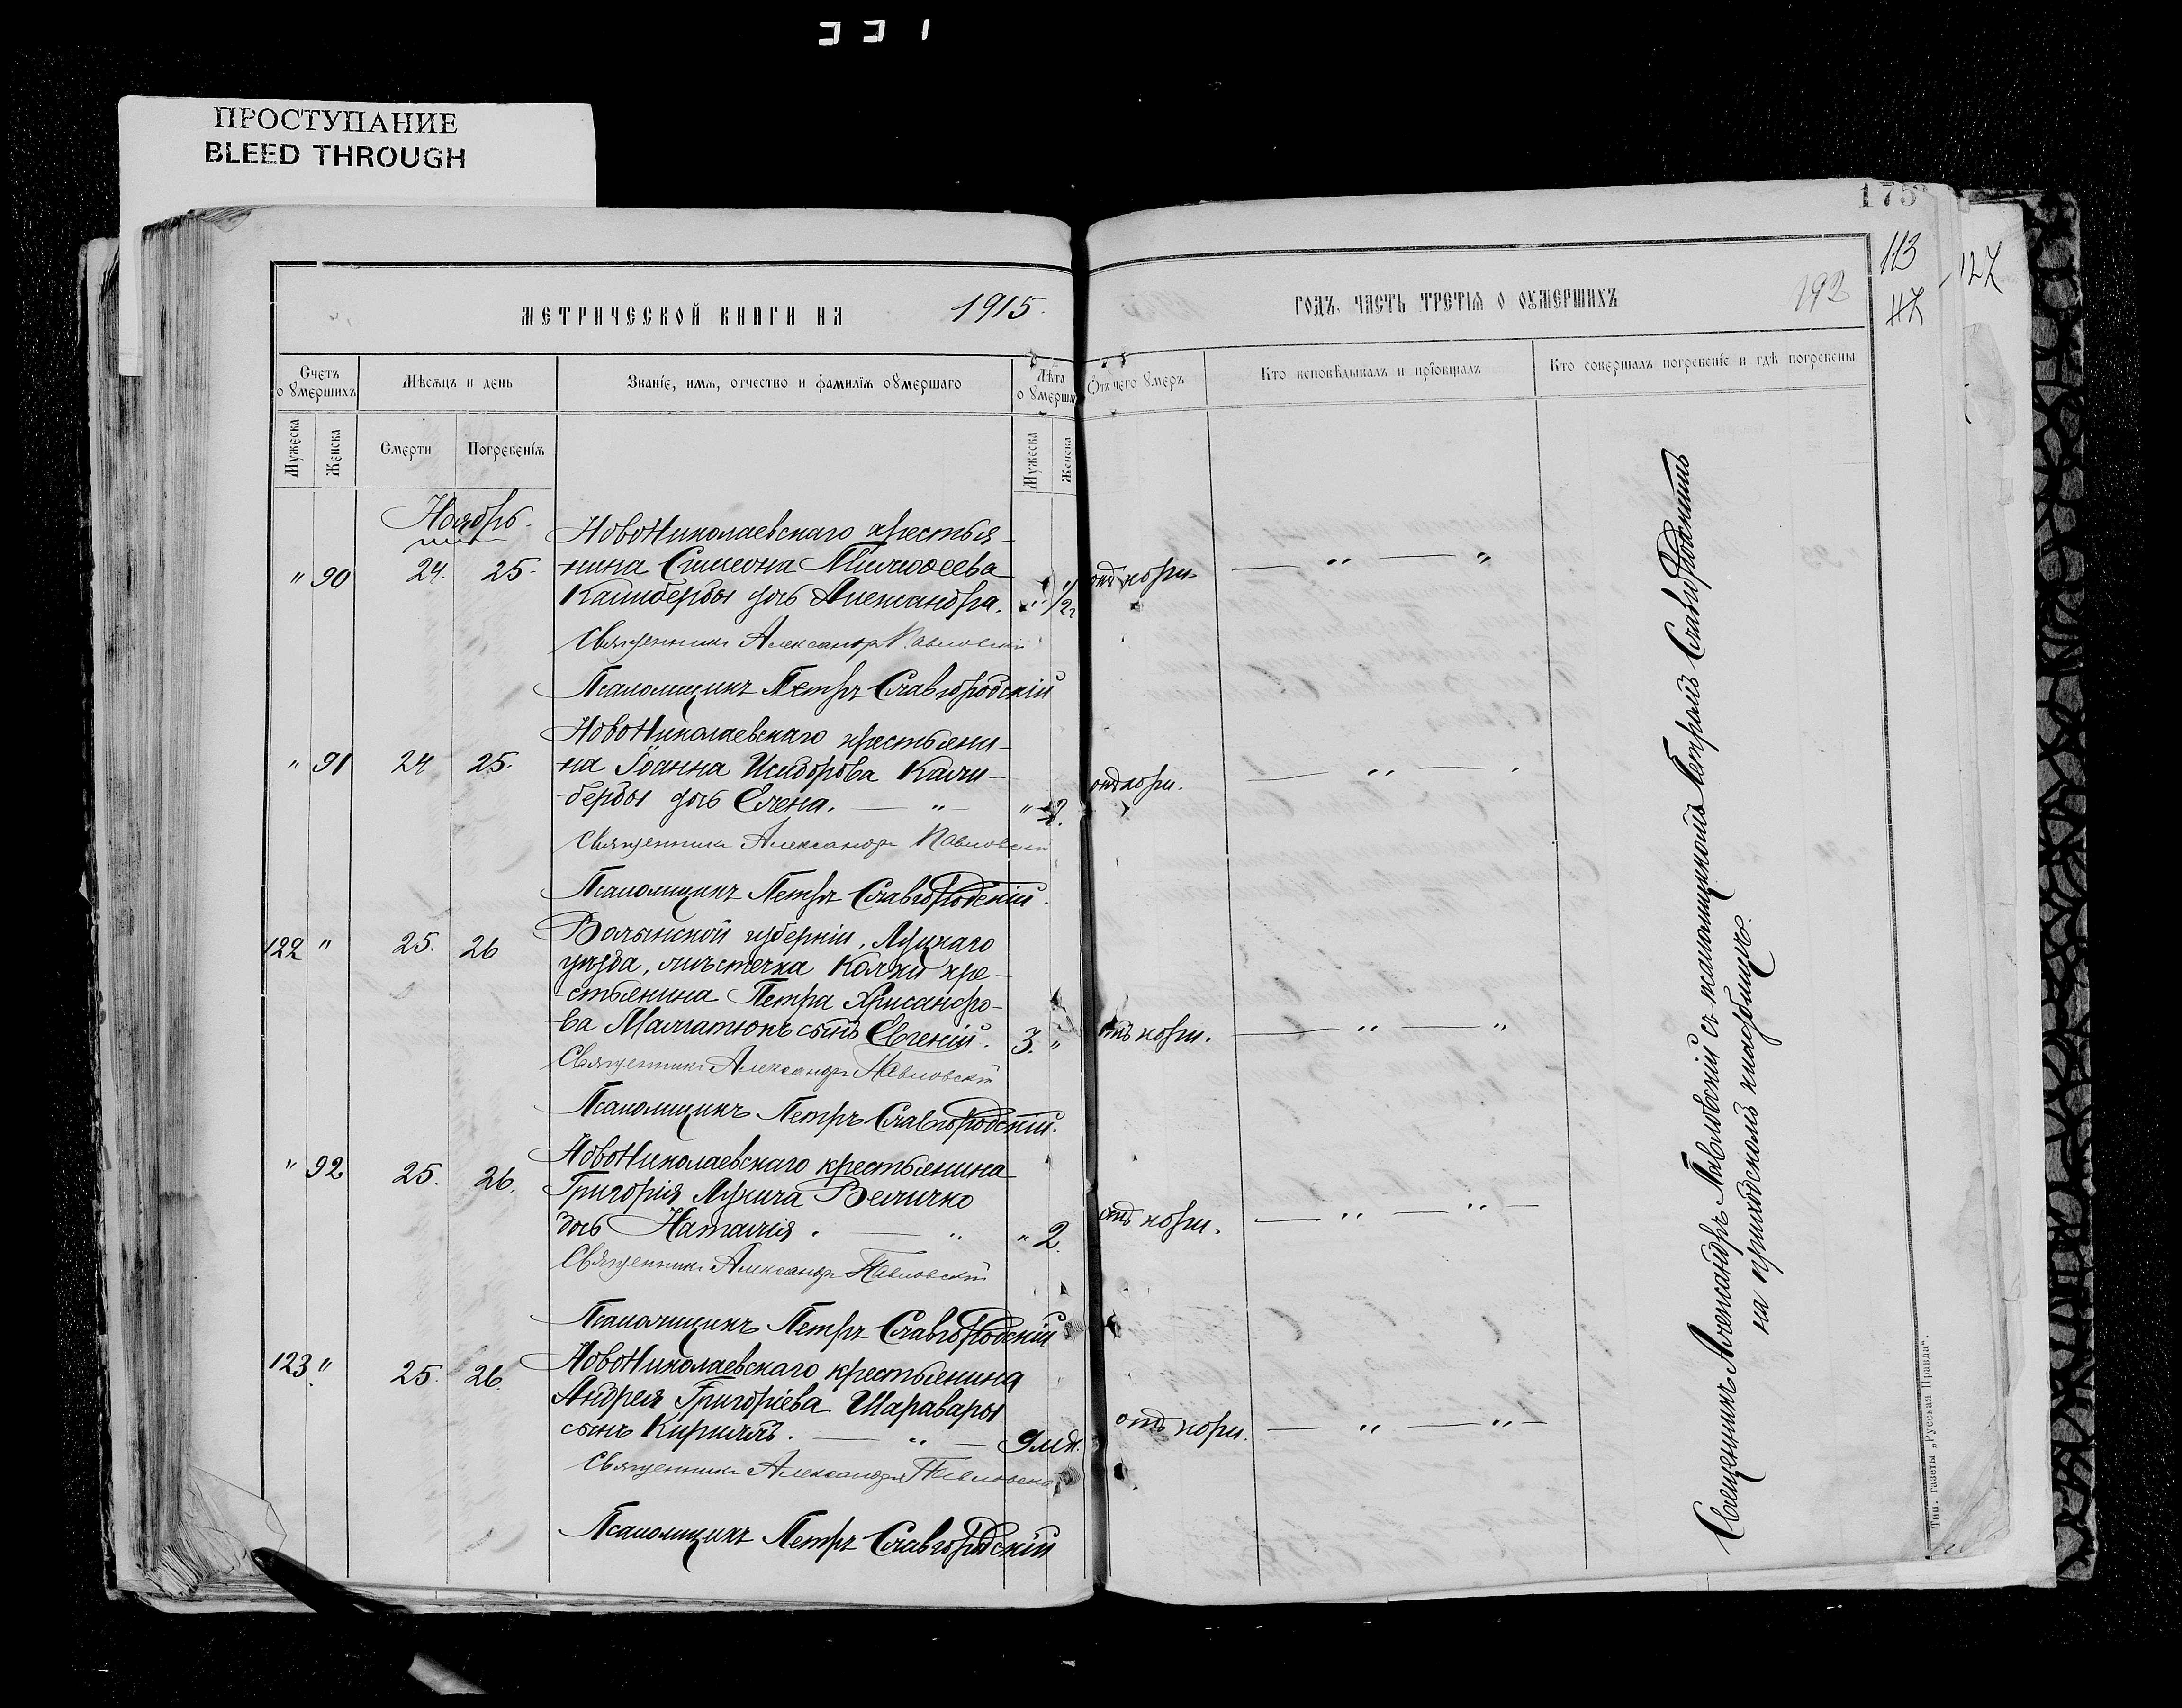 331
ПРОСТУПАНИЕ
BLEED THROUGH
175
113
127
117
192
МЕТРИЧЕСКОЙ КНИГИ НА 1915.
ГОДЪ, ЧАСТЬ ТРЕТІЯ О ОУМЕРШИХЪ
Счетъ оумершихъ
Мѣсяцъ и день
Званіе, имя, отчество и фамилія оумершаго
Лѣта оумерша
Отъ чего умеръ
Кто исповѣдывалъ и пріобщалъ
Кто совершалъ погребеніе и гдѣ погребены
Мужеска
Женска
Смерти
Погребенія
Мужеска
Женска
Ноябрь
НовоНиколаевскаго крестья-
" 90 24. 25. нина Симеона
Калиберды дочь Александра. " 1/2 отъ кори. — " — "
Священникъ Александръ Павловскій
Псаломщикъ Петръ Славгородскій
НовоНиколаевскаго крестьяни-
" 91 24 25. на Іоанна Исидорова Кали-
берды дочь Елена. — " — " 2. отъ кори. — " —
Священникъ Александръ Павловскій
Псаломщикъ Петръ Славгородскій.
122 " 25. 26 Волынской губерніи, Луцкаго
уѣзда, мѣстечка Колки кре-
стьянина Петра Хрисанфо-
ва сынъ Евгеній. 3. " отъ кори. — " — "
Священникъ Александръ Павловскій
Псаломщикъ Петръ Славгородскій.
НовоНиколаевскаго крестьянина
" 92 25. 26. Григорія Лукича Величко
дочь Наталія. — " " 2. отъ кори. — " — " —
Священникъ Александръ Павловскій
Псаломщикъ Петръ Славгородскій
123 " 25. 26. НовоНиколаевскаго крестьянина
Андрея Григоріева Шаравары
сынъ Кириллъ. — " — 9 м. отъ кори. — " — " —
Священникъ Александръ Павловскій
Псаломщикъ Петръ Славгородскій
Священникъ Александръ Павловскій съ псаломщикомъ Петромъ Славгородскимъ
на приходскомъ кладбищѣ.
Тип. газеты „Русская Правда".